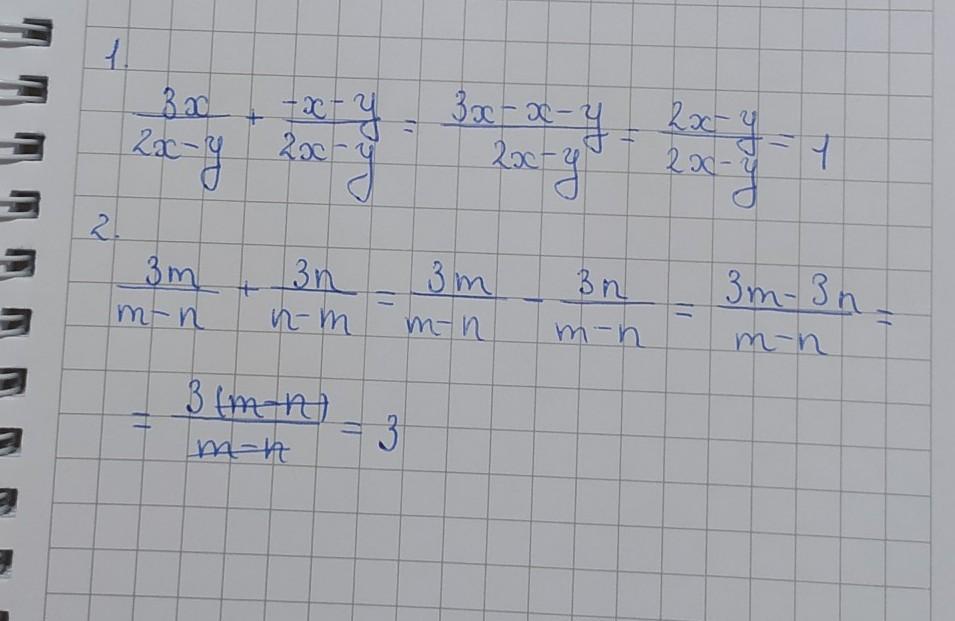 1.
3x/(2x-y) + (-x-y)/(2x-y) = (3x-x-y)/(2x-y) = (2x-y)/(2x-y) = 1
2.
3m/(m-n) + 3n/(n-m) = 3m/(m-n) - 3n/(m-n) = (3m-3n)/(m-n) =
= 3(m-n)/(m-n) = 3